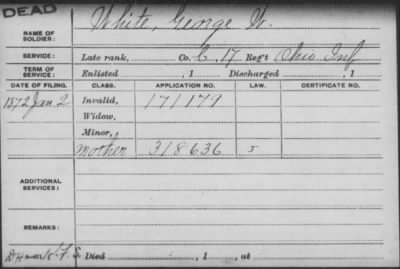 DEAD
NAME OF SOLDIER: White, George W.
SERVICE: Late rank, Co. C, 17 Reg't Ohio Inf
TERM OF SERVICE: Enlisted , 1 Discharged , 1
DATE OF FILING. CLASS. APPLICATION NO. LAW. CERTIFICATE NO.
1872 Jan 2 Invalid, 171179
Widow,
Minor,
Mother 318636 5
ADDITIONAL SERVICES:
REMARKS:
S. Died , 1 , at